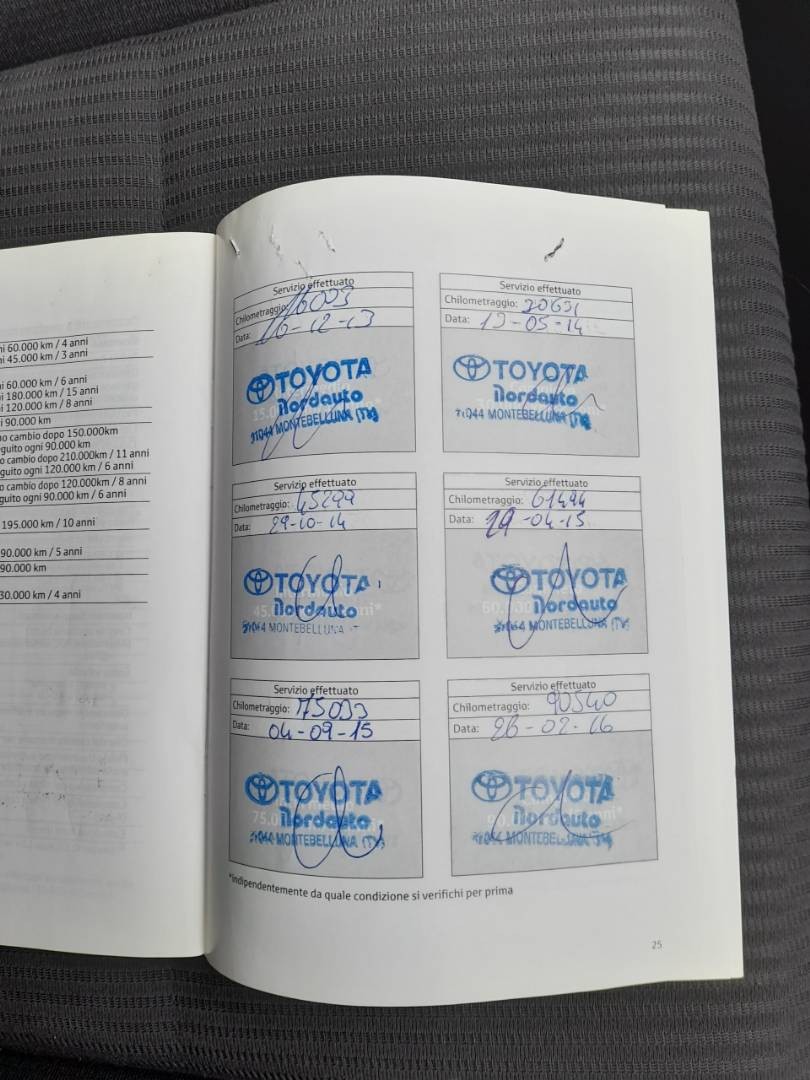 ni 60.000 km / 4 anni
ni 45.000 km / 3 anni
ni 60.000 km / 6 anni
ni 180.000 km / 15 anni
ni 120.000 km / 8 anni
ni 90.000 km
no cambio dopo 150.000km
eguito ogni 90.000 km
o cambio dopo 210.000km / 11 anni
guito ogni 120.000 km / 6 anni
o cambio dopo 120.000km / 8 anni
eguito ogni 90.000 km / 6 anni
195.000 km / 10 anni
90.000 km / 5 anni
90.000 km
30.000 km / 4 anni
Servizio effettuato
Chilometraggio: 16093
Data: 16-12-13
TOYOTA
Nordauto
31044 MONTEBELLUNA (TV)
Servizio effettuato
Chilometraggio: 30631
Data: 19-05-14
TOYOTA
Nordauto
31044 MONTEBELLUNA (TV)
Servizio effettuato
Chilometraggio: 45299
Data: 29-10-14
TOYOTA
Nordauto
31044 MONTEBELLUNA
Servizio effettuato
Chilometraggio: 61494
Data: 29-04-15
TOYOTA
Nordauto
31044 MONTEBELLUNA (TV)
Servizio effettuato
Chilometraggio: 75093
Data: 04-09-15
TOYOTA
Nordauto
31044 MONTEBELLUNA (TV)
Servizio effettuato
Chilometraggio: 90540
Data: 26-02-16
TOYOTA
Nordauto
31044 MONTEBELLUNA (TV)
*indipendentemente da quale condizione si verifichi per prima
25